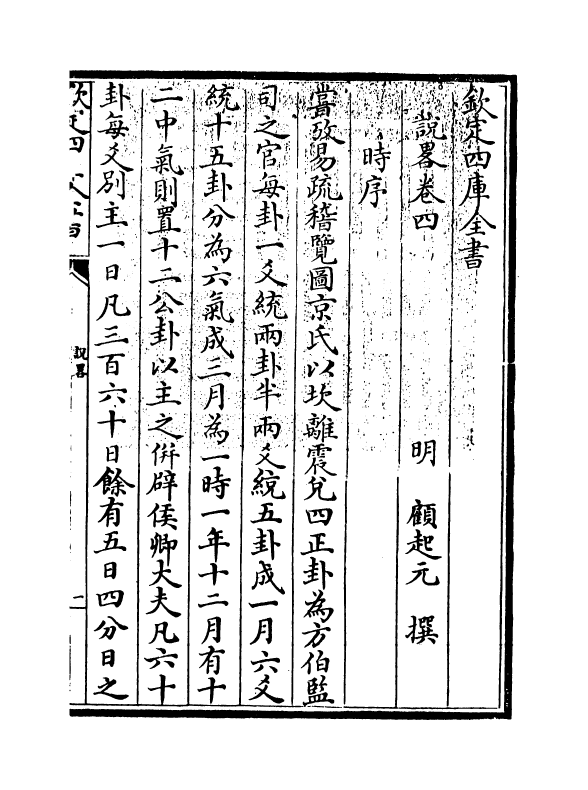 欽定四庫全書
說畧卷四
明 顧起元 撰
時序
嘗攷易疏稽覽圖京氏以坎離震兌四正卦為方伯監
司之官每卦一爻統兩卦半兩爻統五卦成一月六爻
統十五卦分為六氣成三月為一時一年十二月有十
二中氣則置十二公卦以主之併辟侯卿大夫凡六十
卦每爻別主一日凡三百六十日餘有五日四分日之
欽定四庫全書
說畧